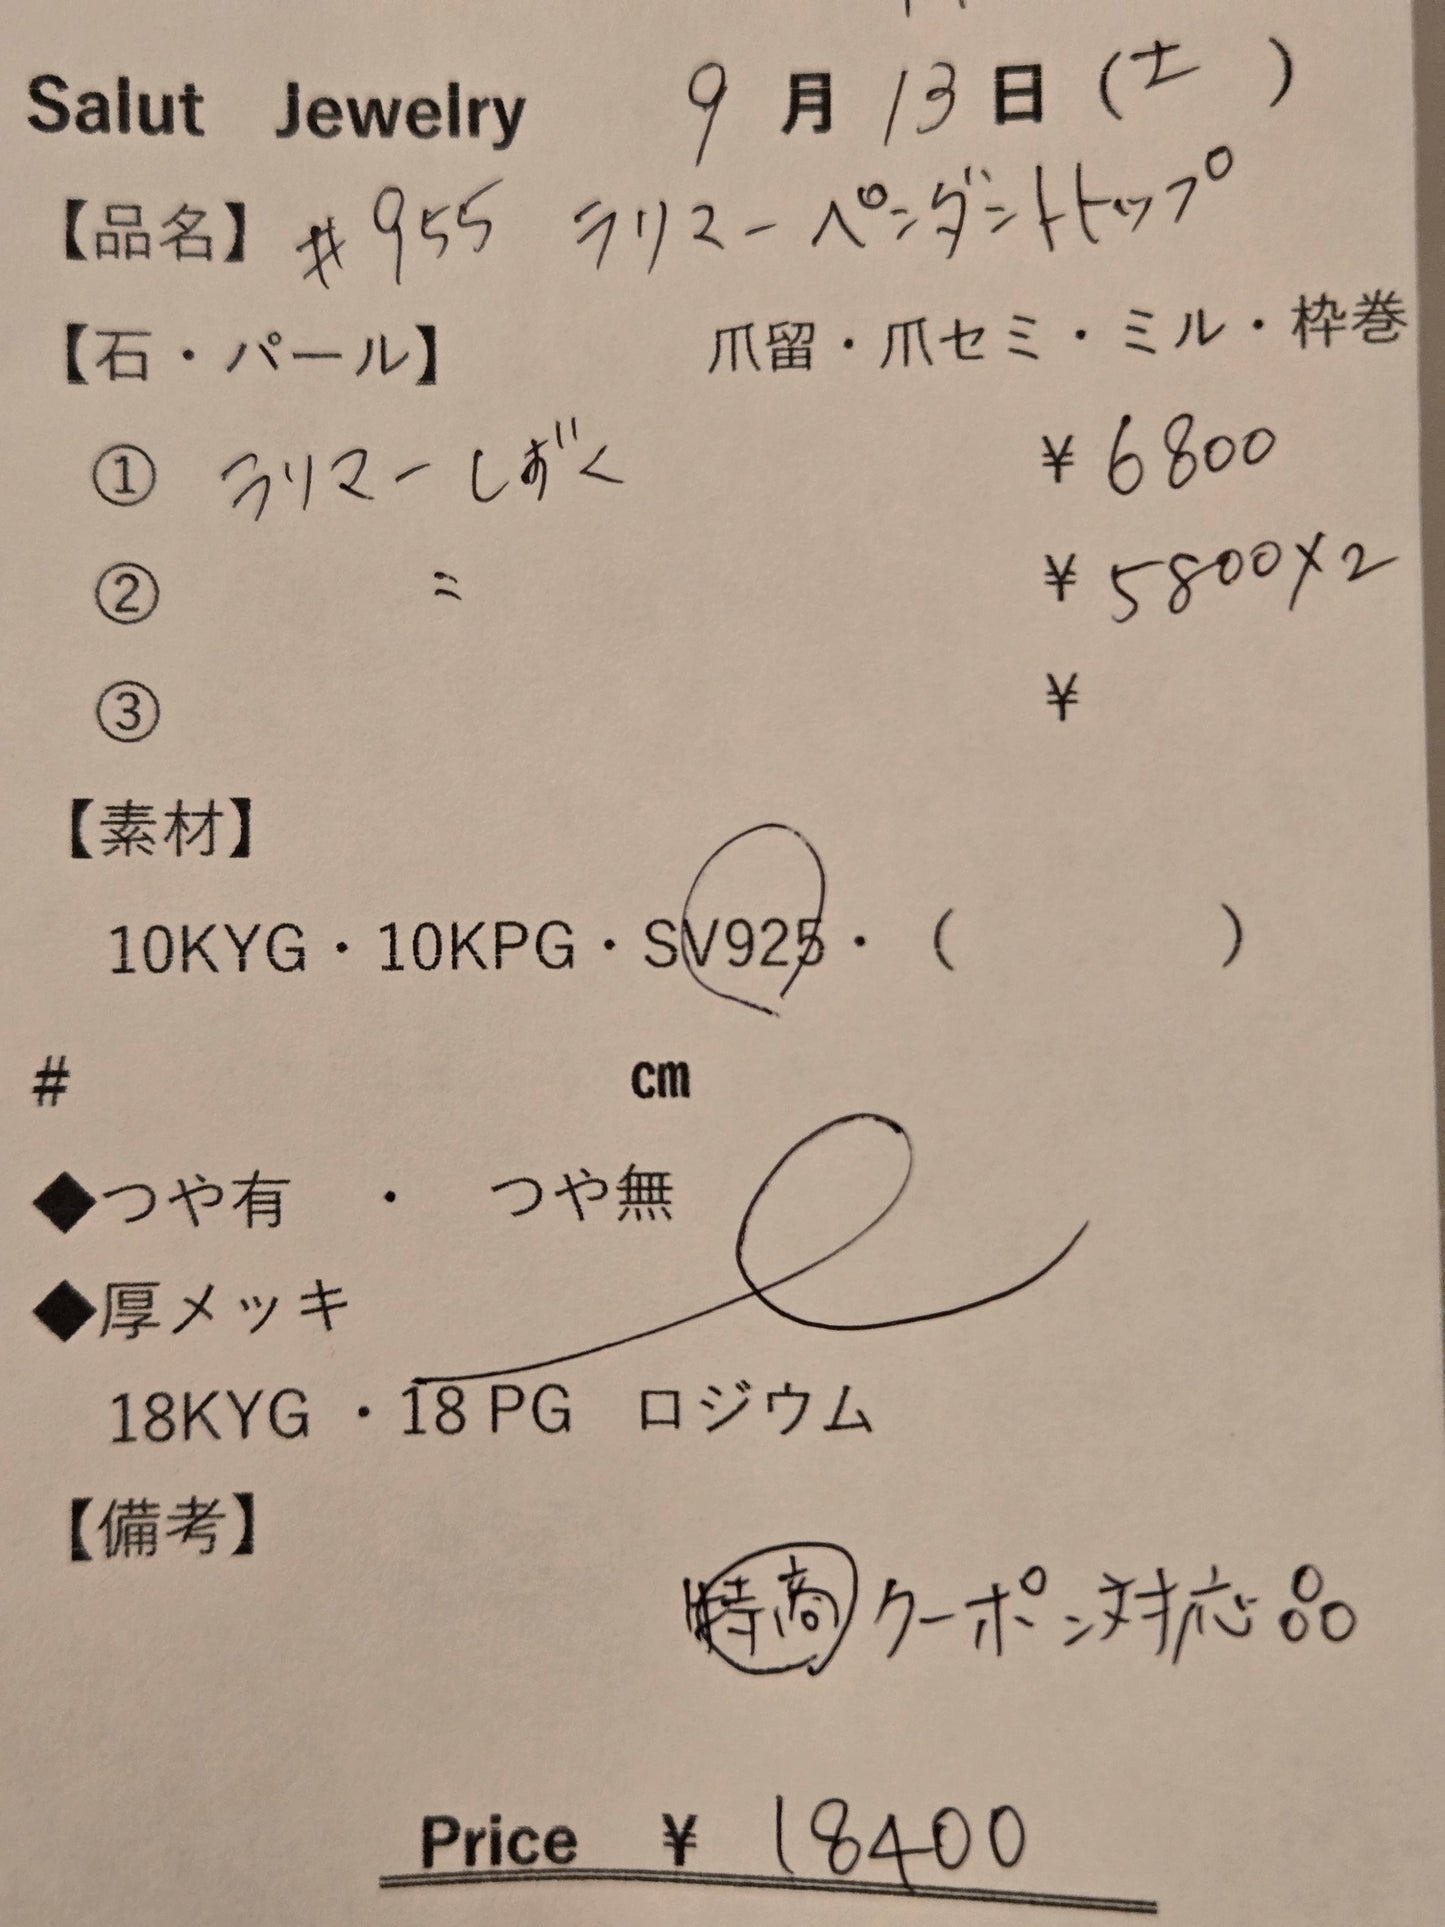 Salut Jewelry 9月13日(土)
【品名】#955 ラリマーペンダントトップ
【石・パール】 爪留・爪セミ・ミル・枠巻
① ラリマーしずく ¥6800
② 〃 ¥5800×2
③ ¥
【素材】
10KYG・10KPG・SV925・( )
# cm
◆つや有 ・ つや無
◆厚メッキ
18KYG ・18 PG ロジウム
【備考】
特商 クーポン対応品
Price ¥ 18400